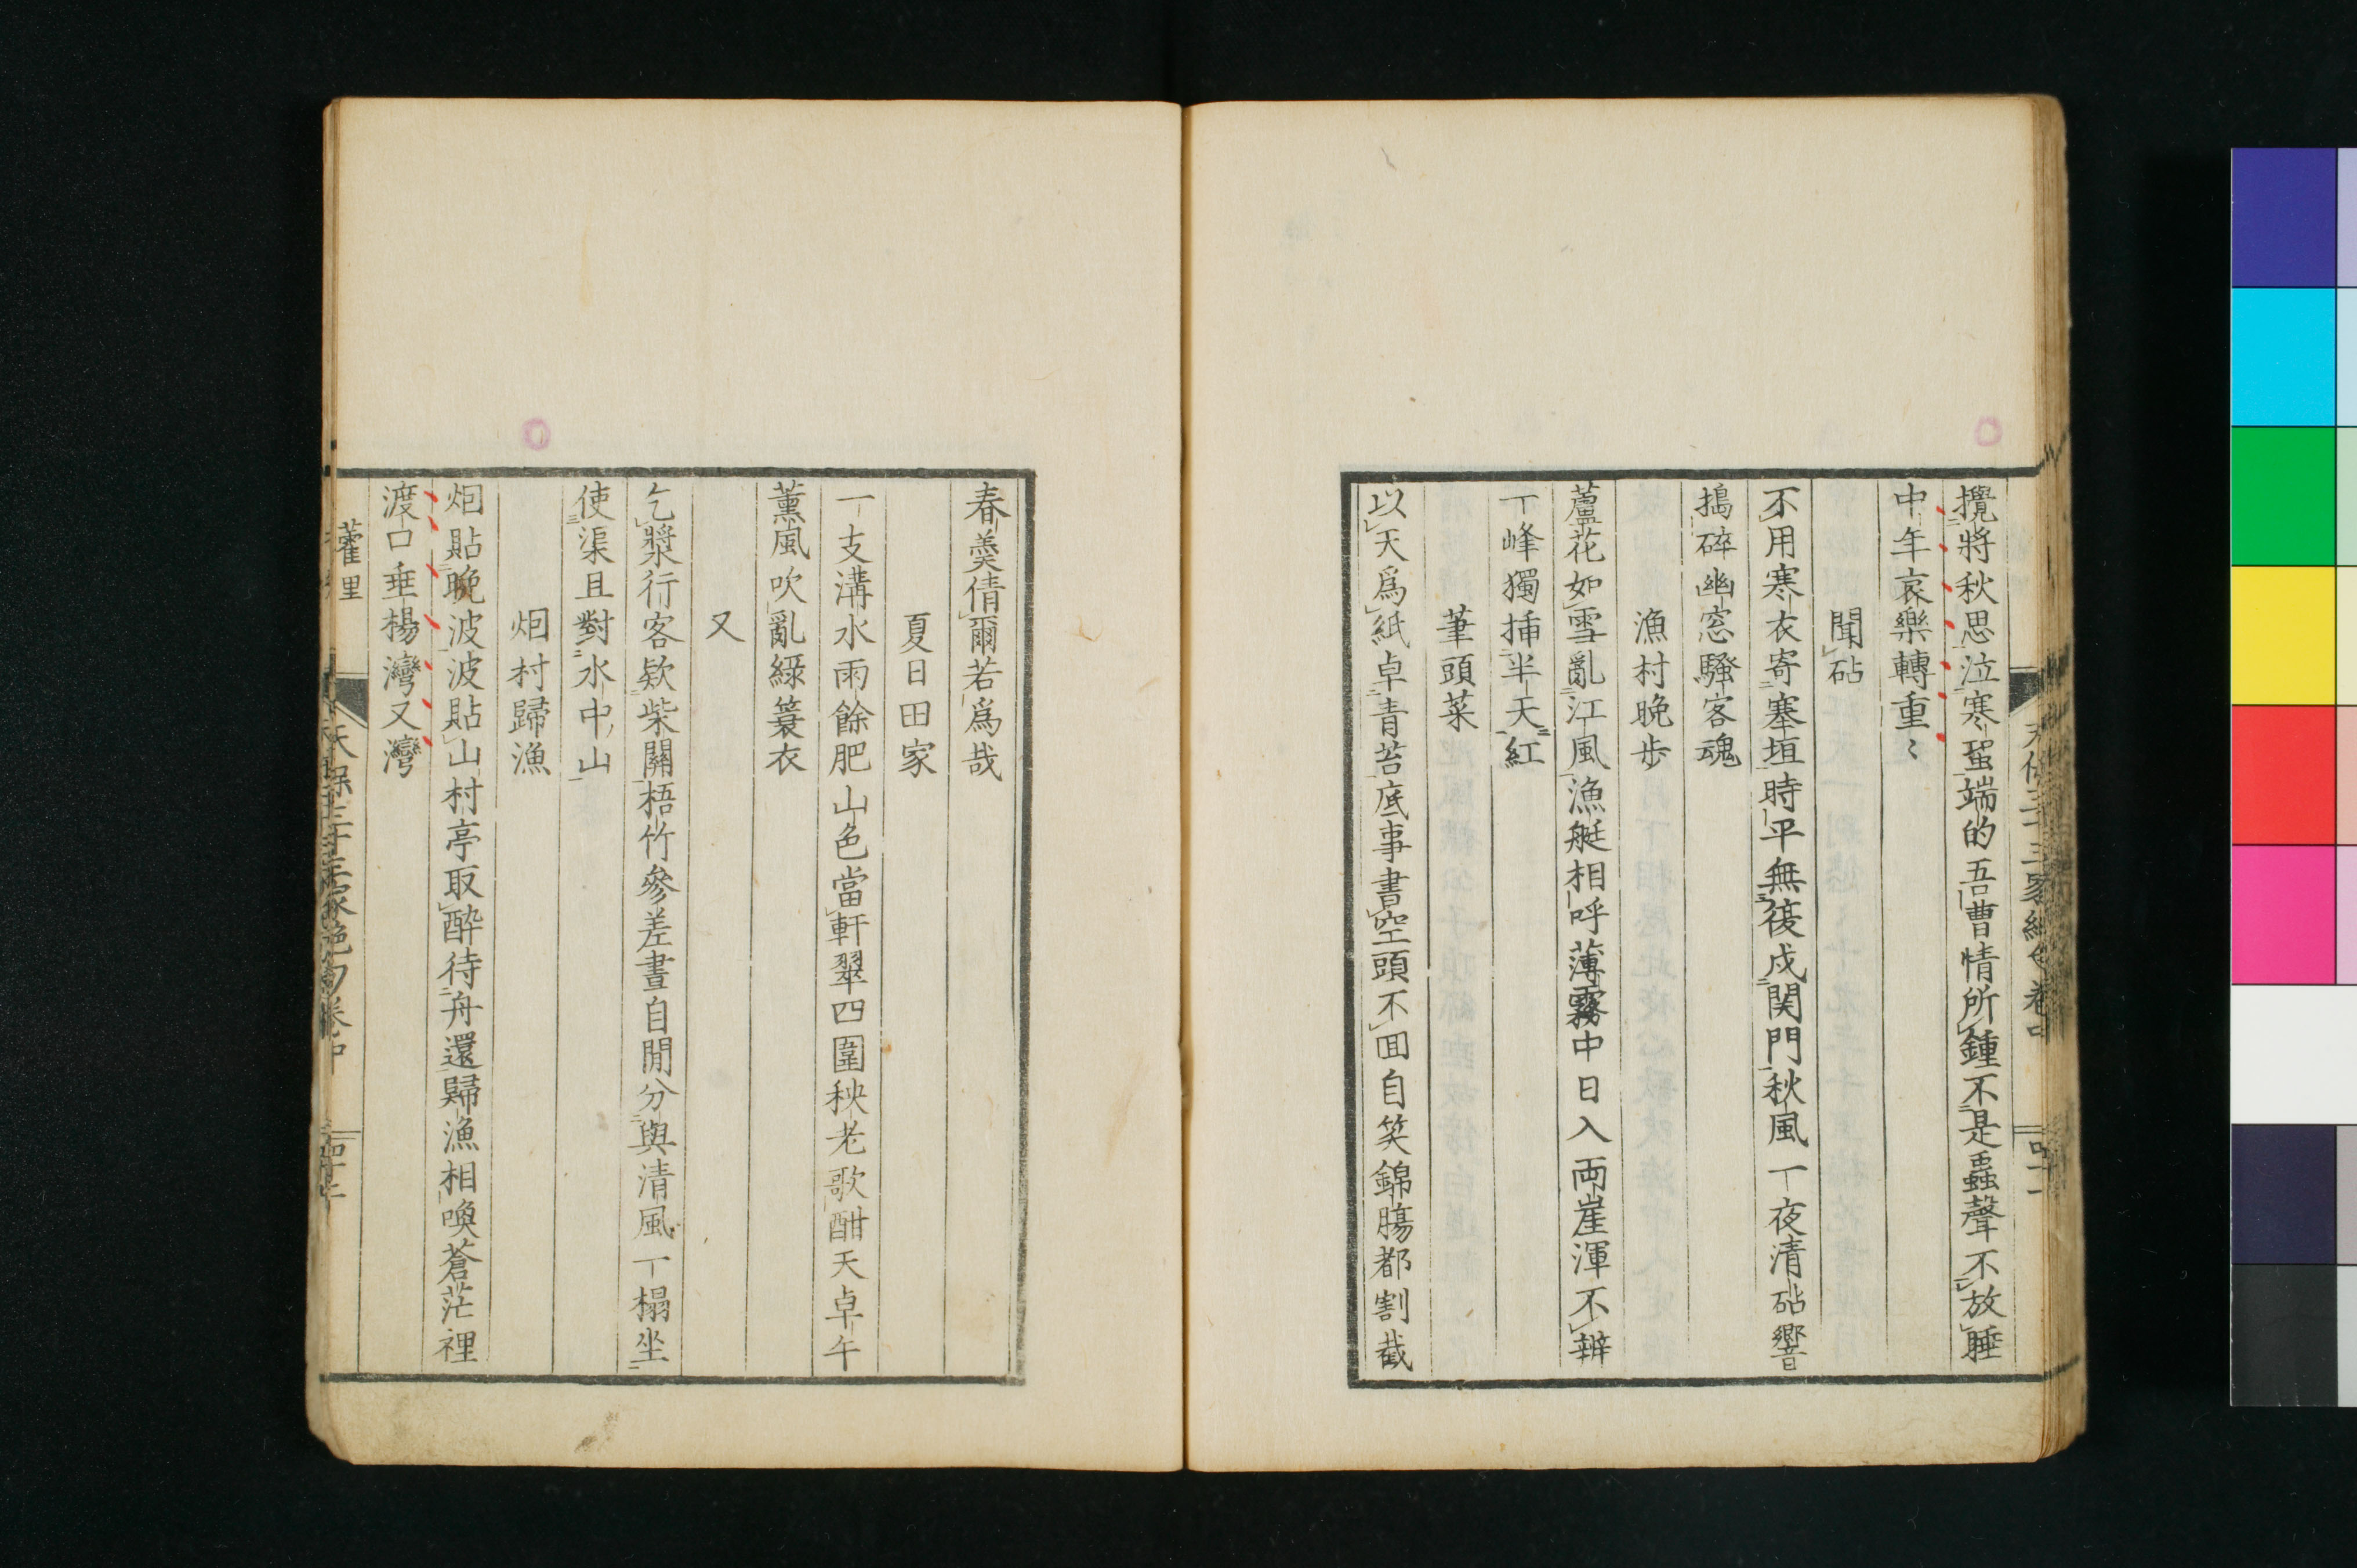 攪將秋思泣寒蛩端的吾曹情所鍾不是蟲聲不放睡
中年哀樂轉重〻
聞砧
不用寒衣寄塞垣時平無復戍関門秋風一夜清砧響
搗碎幽窓騷客魂
漁村晩歩
蘆花如雪亂江風漁艇相呼薄霧中日入両崖渾不辨
一峰獨插半天紅
筆頭菜
以天爲紙卓青苔底事書空頭不囬自笑錦腸都割截
春羹倩爾若爲哉
夏日田家
一支溝水雨餘肥山色當軒翠四圍秧老歌酣天卓午
薫風吹亂綠簑衣
又
乞漿行客欵柴關梧竹參差晝自閒分與清風一榻坐
使渠且對水中山
烟村歸漁
烟貼晩波波貼山村亭取醉待舟還歸漁相喚蒼茫裡
渡口垂楊灣又灣
藿里
天保三十三家絶句卷中